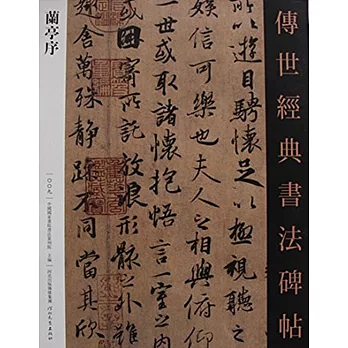 傳世經典書法碑帖
所以遊目騁懷足以極視
娛信可樂也夫人之相與俯仰
一世或取諸懷抱悟言一室之
因寄所託放浪形骸之外雖
趣舍萬殊静躁不同當其欣
蘭亭序
〇〇九
主編